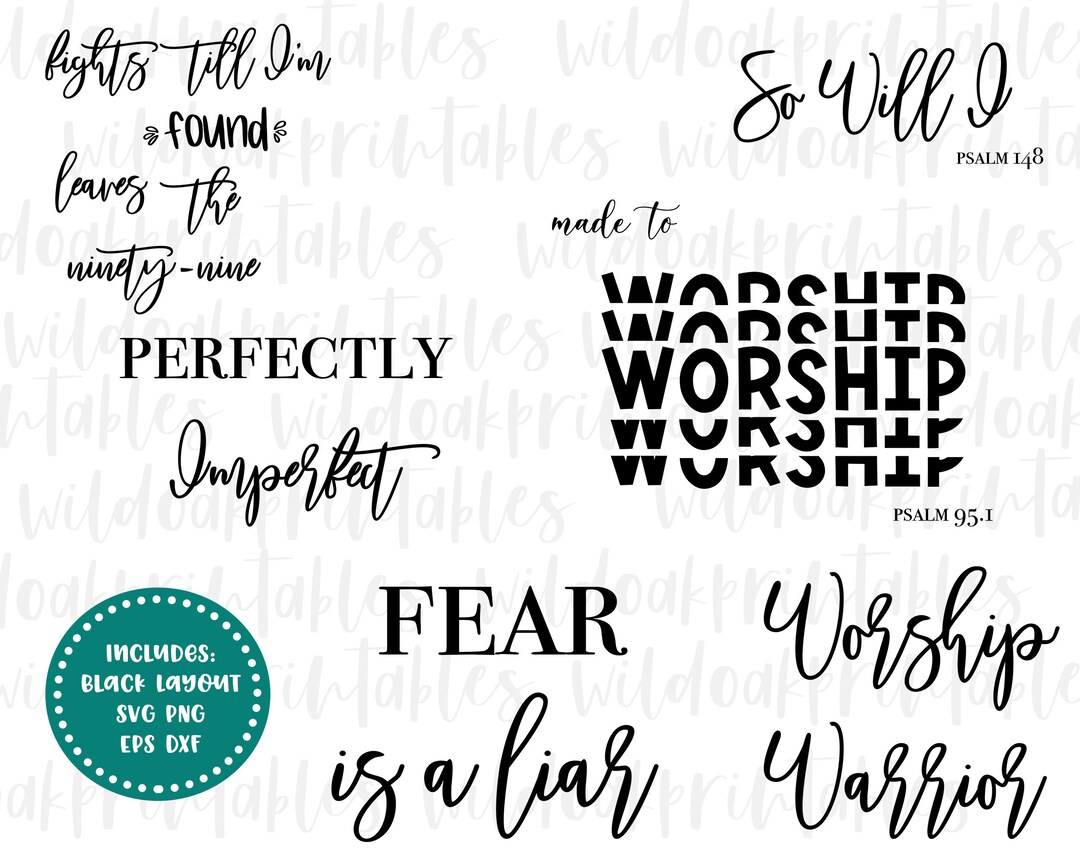 fights till I'm
found
leaves the
ninety-nine
So Will I
PSALM 148
made to
WORSHIP
WORSHIP
WORSHIP
WORSHIP
WORSHIP
PSALM 95.1
PERFECTLY
Imperfect
INCLUDES:
BLACK LAYOUT
SVG PNG
EPS DXF
FEAR
is a liar
Worship
Warrior
wildoakprintables